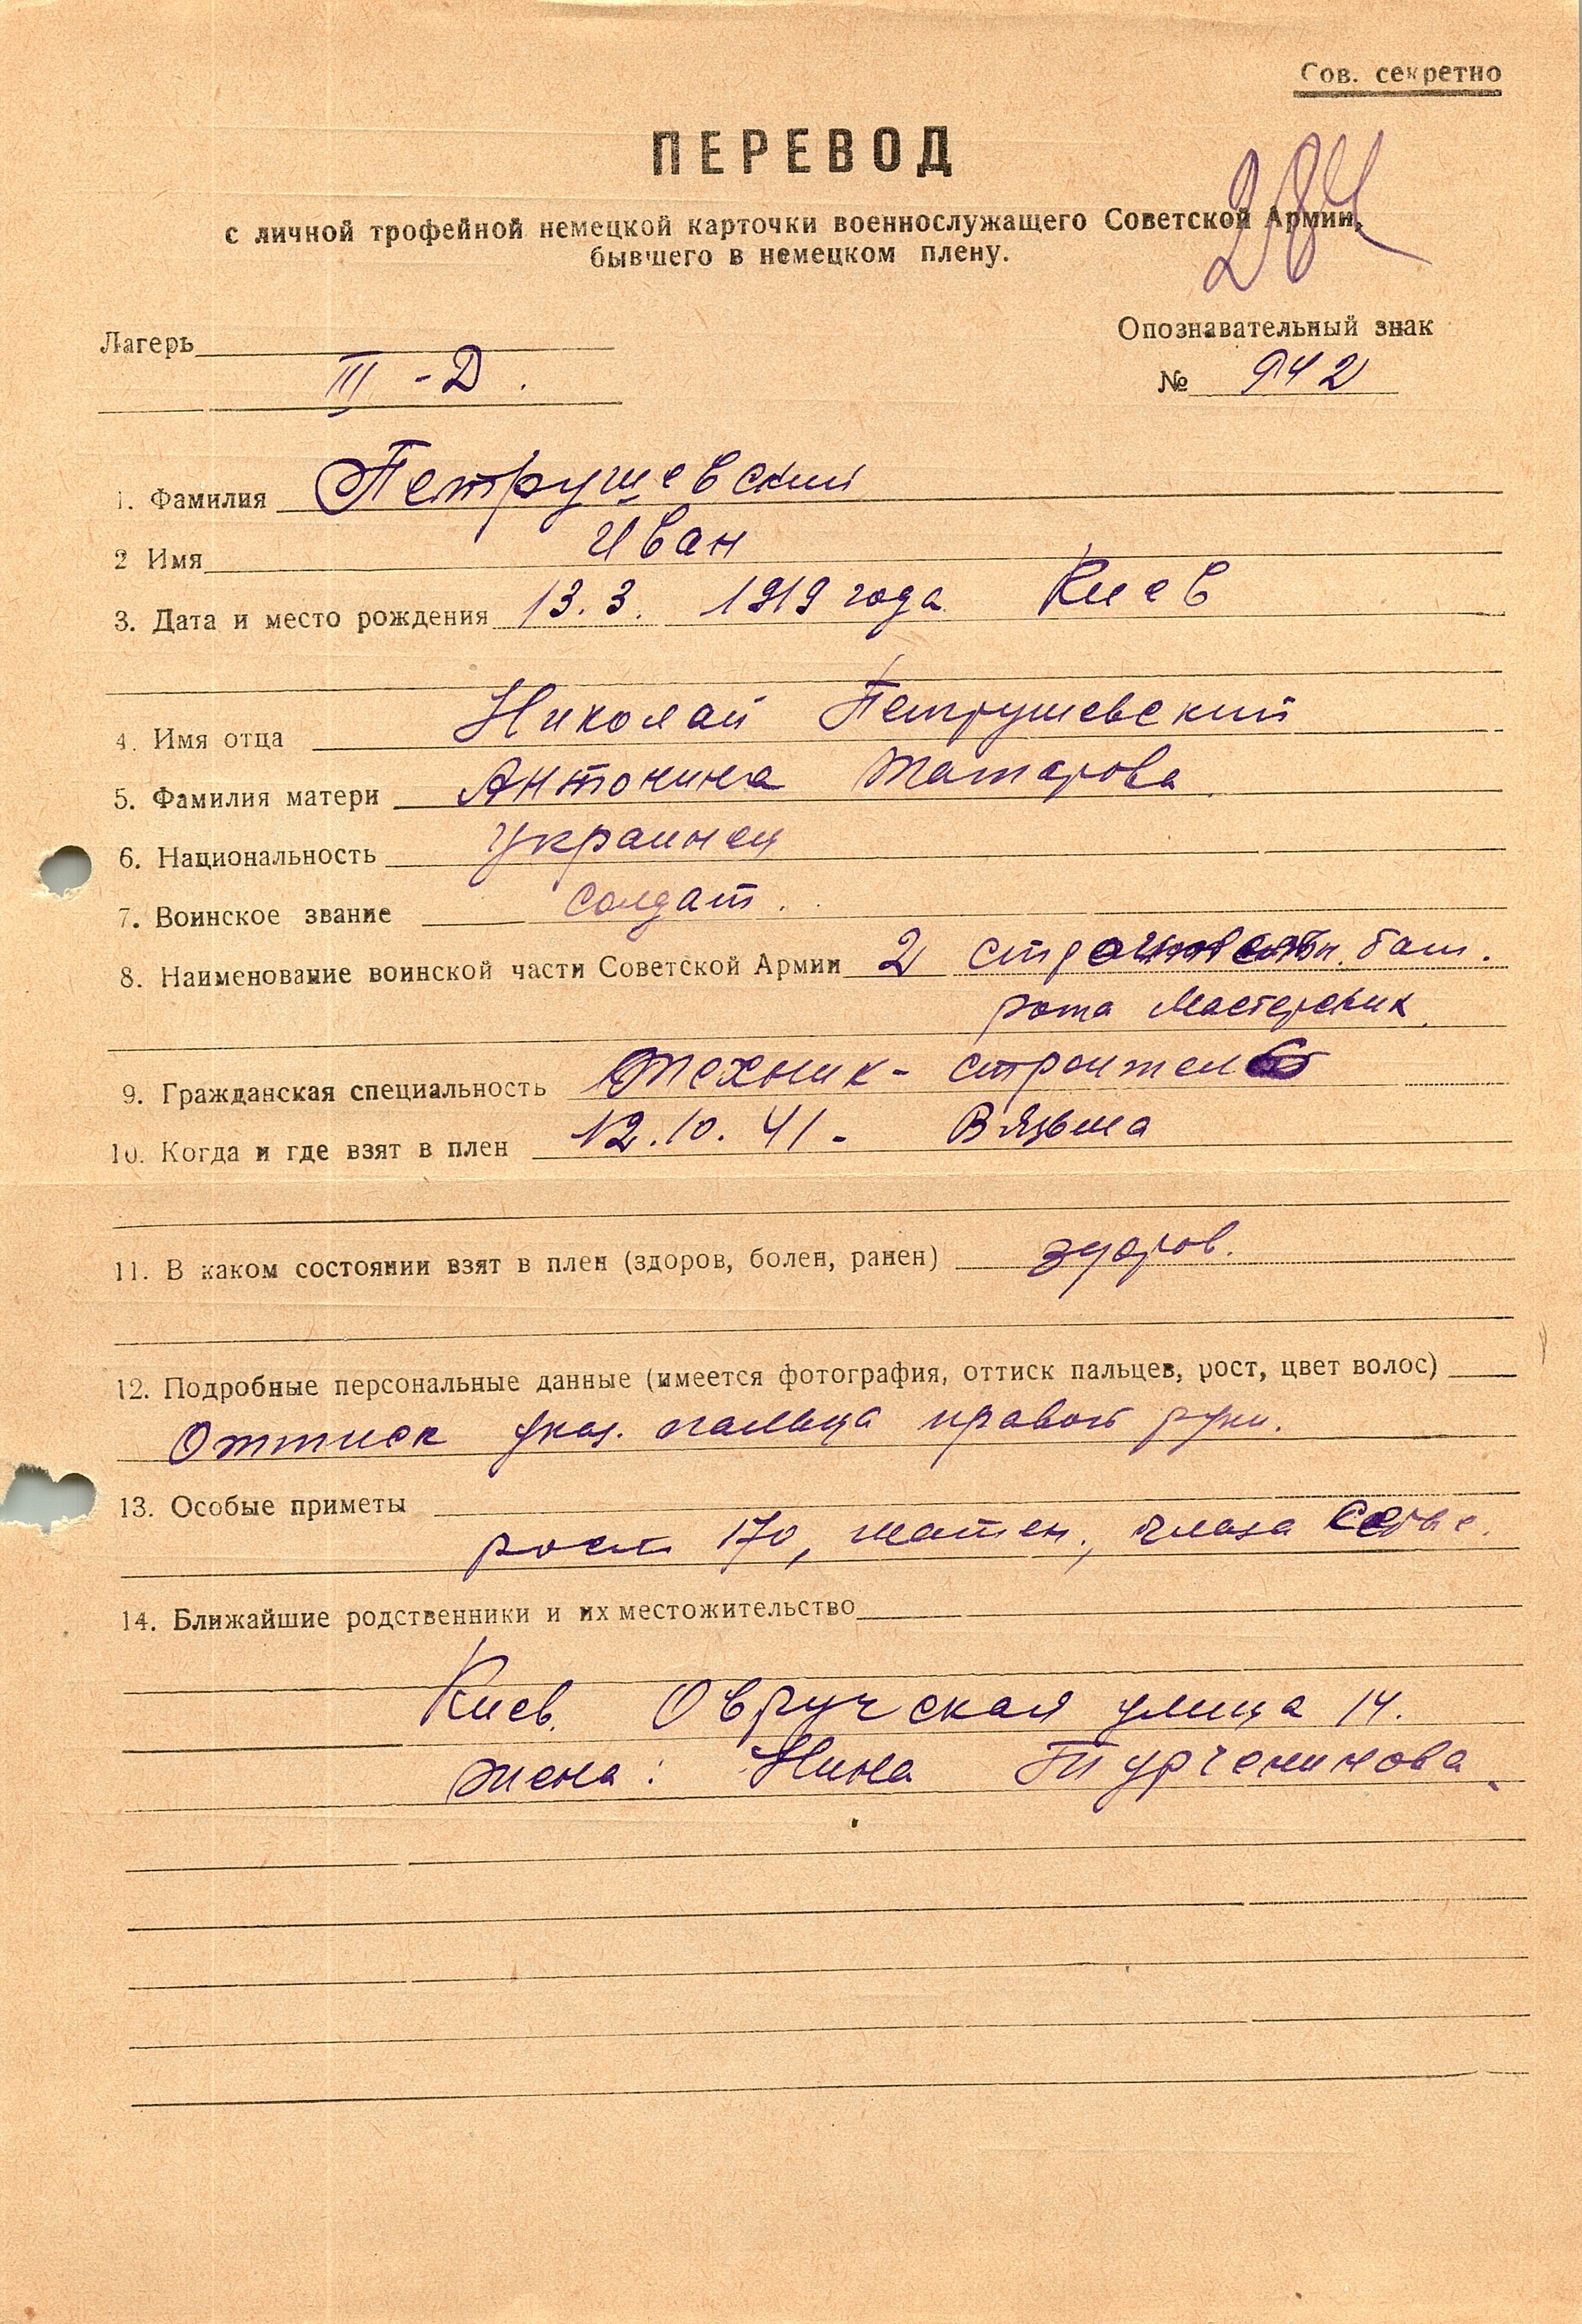 Сов. секретно
ПЕРЕВОД
284
с личной трофейной немецкой карточки военнослужащего Советской Армии,
бывшего в немецком плену.
Лагерь
III - Д.
Опознавательный знак
№ 942
1. Фамилия Петрушевский
2 Имя Иван
3. Дата и место рождения 13. 3. 1919 года Киев
4. Имя отца Николай Петрушевский
5. Фамилия матери Антонина Татарова
6. Национальность украинец
7. Воинское звание солдат.
8. Наименование воинской части Советской Армии 2 бат.
рота Мастерских
9. Гражданская специальность техник - строитель
10. Когда и где взят в плен 12. 10. 41 - Вязьма
11. В каком состоянии взят в плен (здоров, болен, ранен) здоров.
12. Подробные персональные данные (имеется фотография, оттиск пальцев, рост, цвет волос)
Оттиск указ. пальца правой руки.
13. Особые приметы
рост 170, шатен, глаза серые.
14. Ближайшие родственники и их местожительство
Киев. Овручская улица 14.
жена: Нина Турченинова